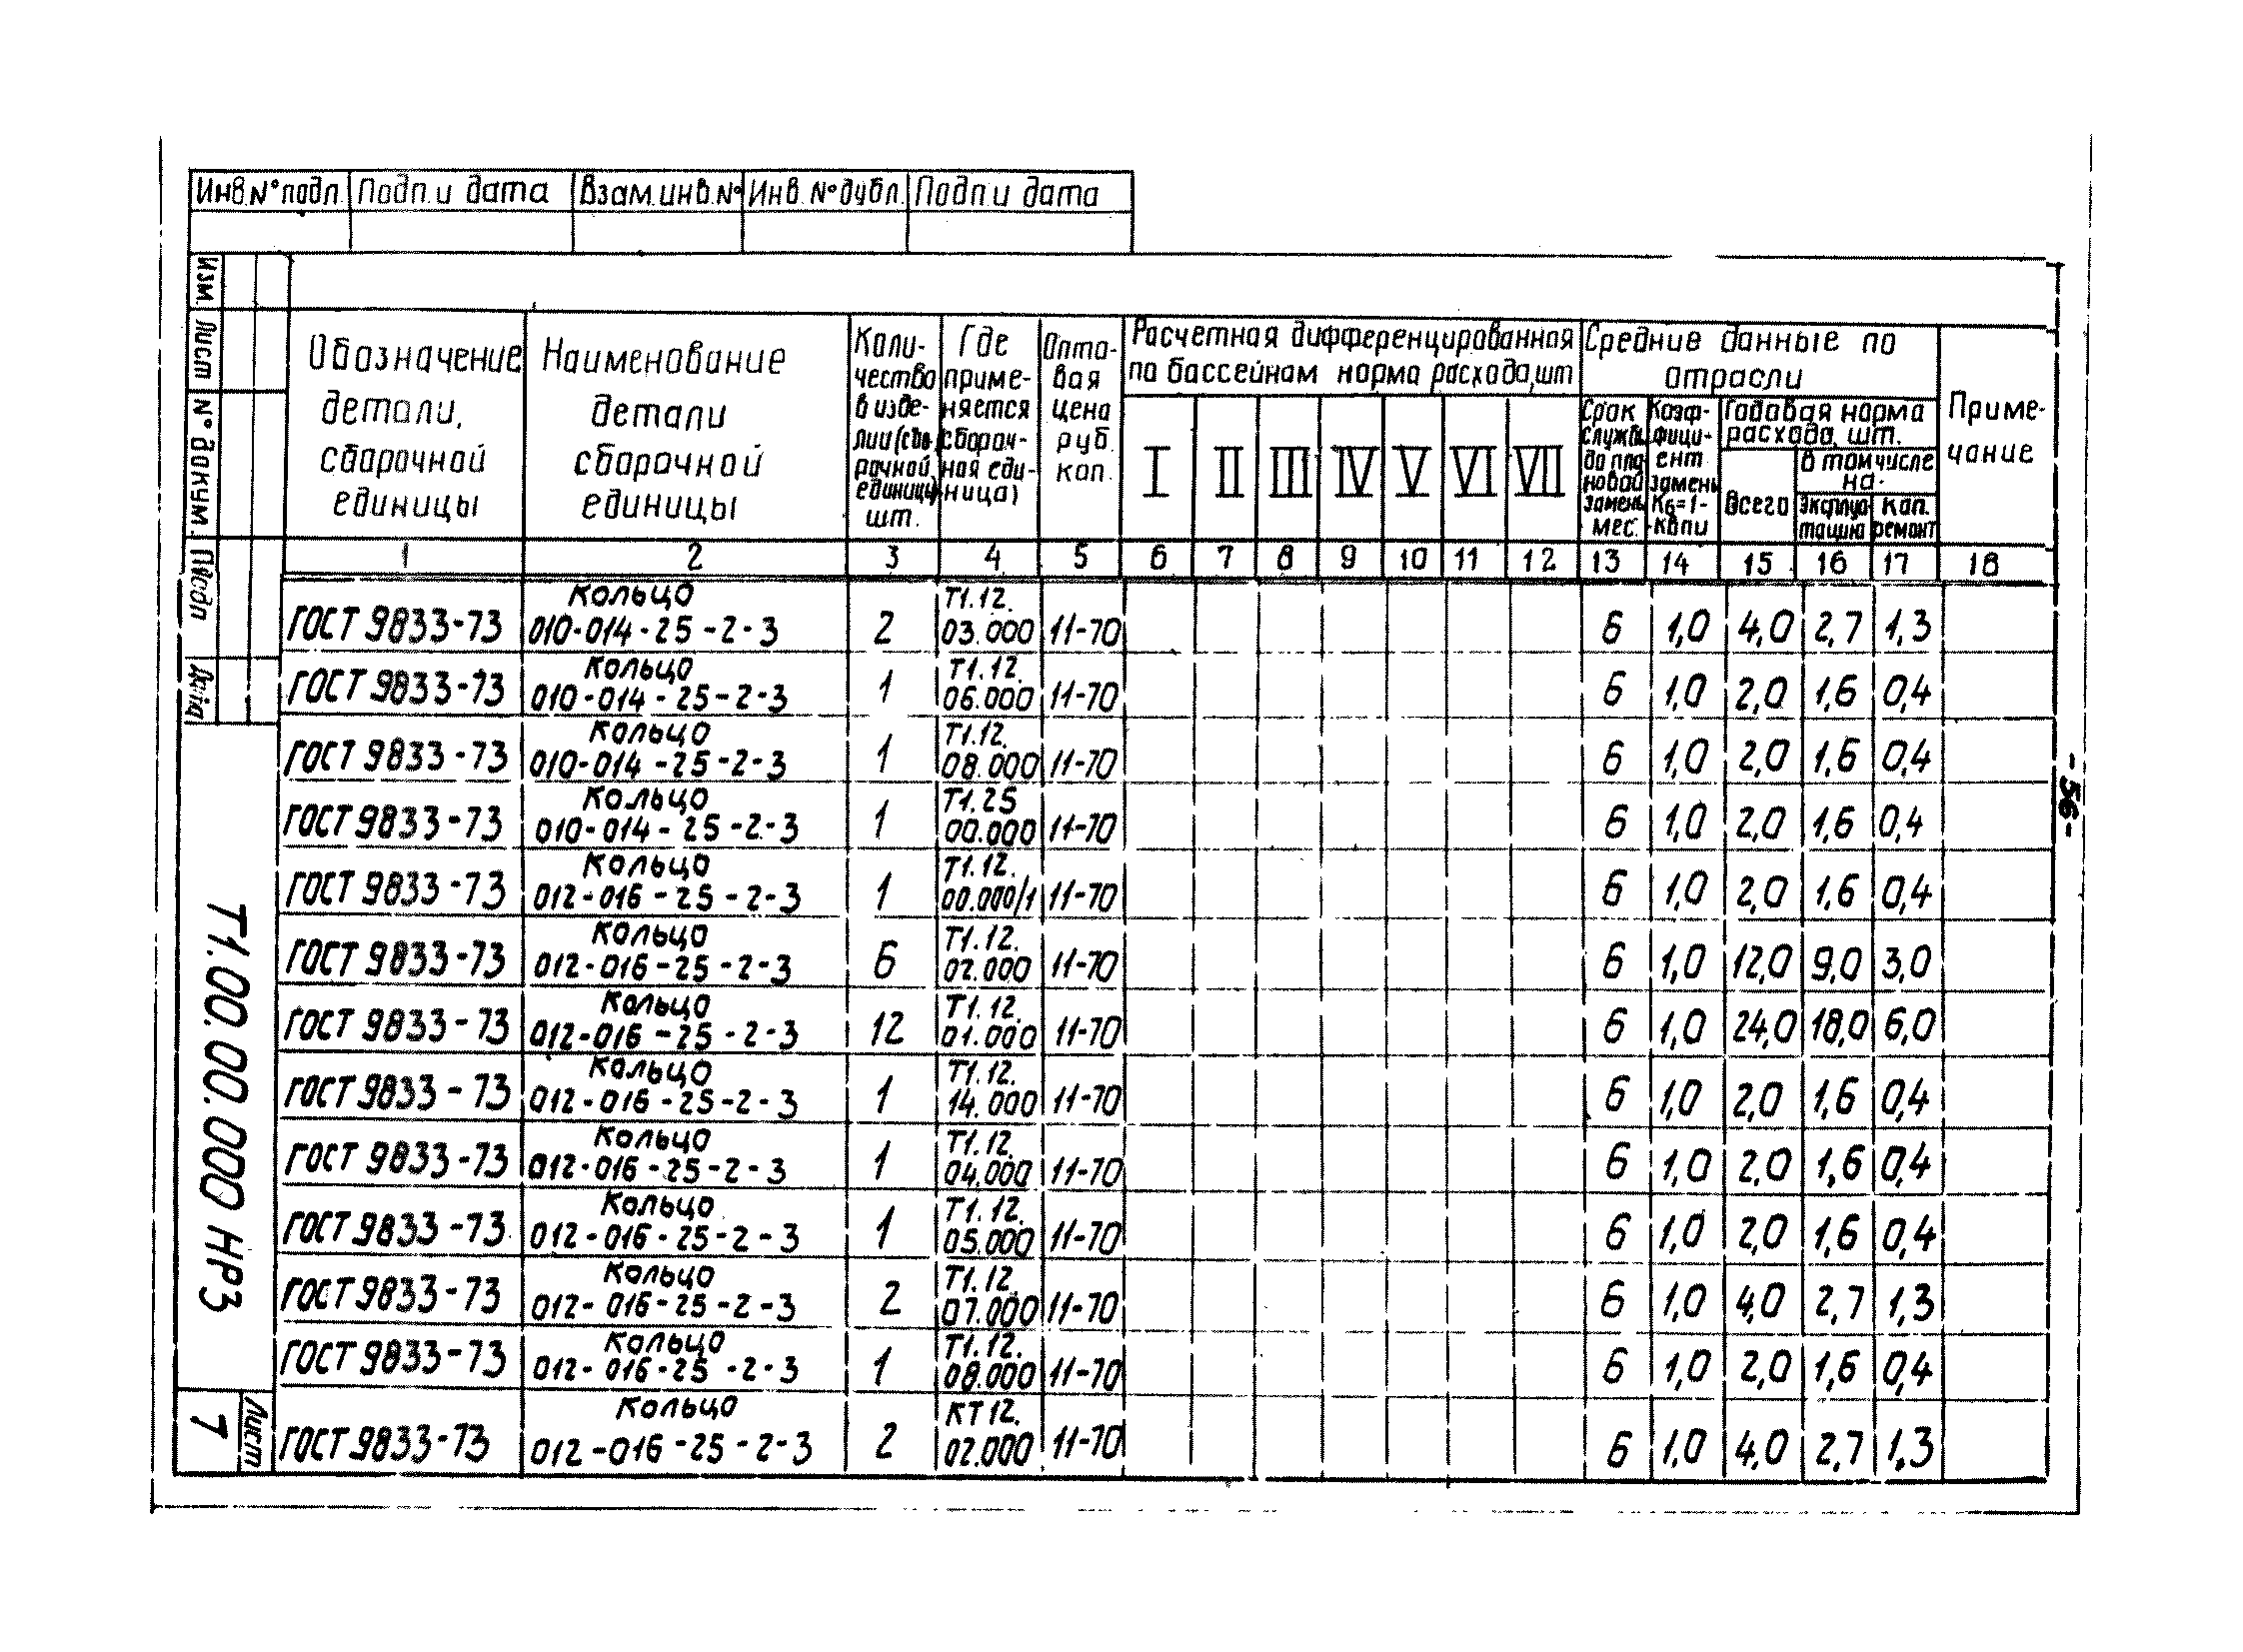 Инв.№ подл. Подп. и дата Взам. инв. № Инв. № дубл. Подп. и дата
Изм. Лист № докум. Подп Дата
Обозначение детали, сборочной единицы
Наименование детали сборочной единицы
Коли-
чество
в изде-
лии (сбо-
рочной
единицы)
шт.
Где
приме-
няется
(сбороч-
ная еди-
ница)
Опто-
вая
цена
руб.
коп.
Расчетная дифференцированная
по бассейнам норма расхода, шт
I II III IV V VI VII
Средние данные по
отрасли
Срок
службы
до пла-
новой
замены
мес.
Коэф-
фици-
ент
замены
Кб=1-
-квпи
Годовая норма
расхода, шт.
Всего
в том числе
на-
Эксплуа-
тацию
кап.
ремонт
Приме-
чание
1 2 3 4 5 6 7 8 9 10 11 12 13 14 15 16 17 18
Кольцо Т1.12.
ГОСТ 9833-73 010-014-25-2-3 2 03.000 11-70 6 1,0 4,0 2,7 1,3
Кольцо Т1.12.
ГОСТ 9833-73 010-014-25-2-3 1 06.000 11-70 6 1,0 2,0 1,6 0,4
Кольцо Т1.12.
ГОСТ 9833-73 010-014-25-2-3 1 08.000 11-70 6 1,0 2,0 1,6 0,4
Кольцо Т1.25
ГОСТ 9833-73 010-014-25-2-3 1 00.000 11-70 6 1,0 2,0 1,6 0,4
Кольцо Т1.12.
ГОСТ 9833-73 012-016-25-2-3 1 00.000/1 11-70 6 1,0 2,0 1,6 0,4
Кольцо Т1.12.
ГОСТ 9833-73 012-016-25-2-3 6 02.000 11-70 6 1,0 12,0 9,0 3,0
Кольцо Т1.12.
ГОСТ 9833-73 012-016-25-2-3 12 01.000 11-70 6 1,0 24,0 18,0 6,0
Кольцо Т1.12.
ГОСТ 9833-73 012-016-25-2-3 1 14.000 11-70 6 1,0 2,0 1,6 0,4
Кольцо Т1.12.
ГОСТ 9833-73 012-016-25-2-3 1 04.000 11-70 6 1,0 2,0 1,6 0,4
Кольцо Т1.12.
ГОСТ 9833-73 012-016-25-2-3 1 05.000 11-70 6 1,0 2,0 1,6 0,4
Кольцо Т1.12.
ГОСТ 9833-73 012-016-25-2-3 2 07.000 11-70 6 1,0 4,0 2,7 1,3
Кольцо Т1.12.
ГОСТ 9833-73 012-016-25-2-3 1 08.000 11-70 6 1,0 2,0 1,6 0,4
Кольцо КТ12.
ГОСТ 9833-73 012-016-25-2-3 2 02.000 11-70 6 1,0 4,0 2,7 1,3
Т1.00.00.000 НР3
Лист
7
-56-